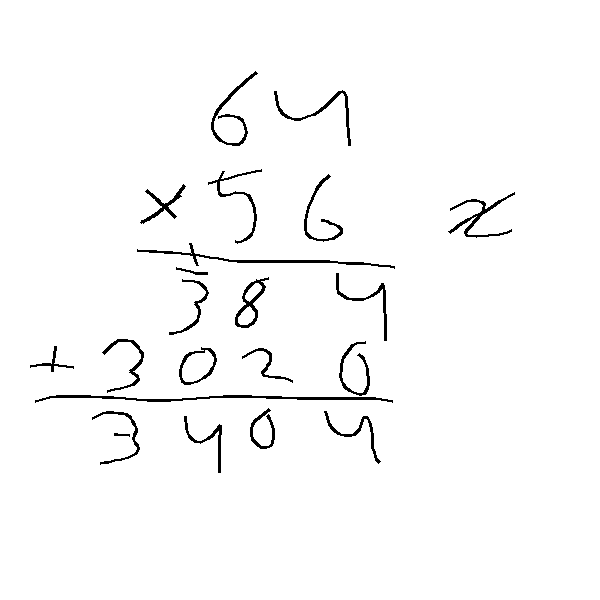 64
× 56 x
384
+ 3020
3404